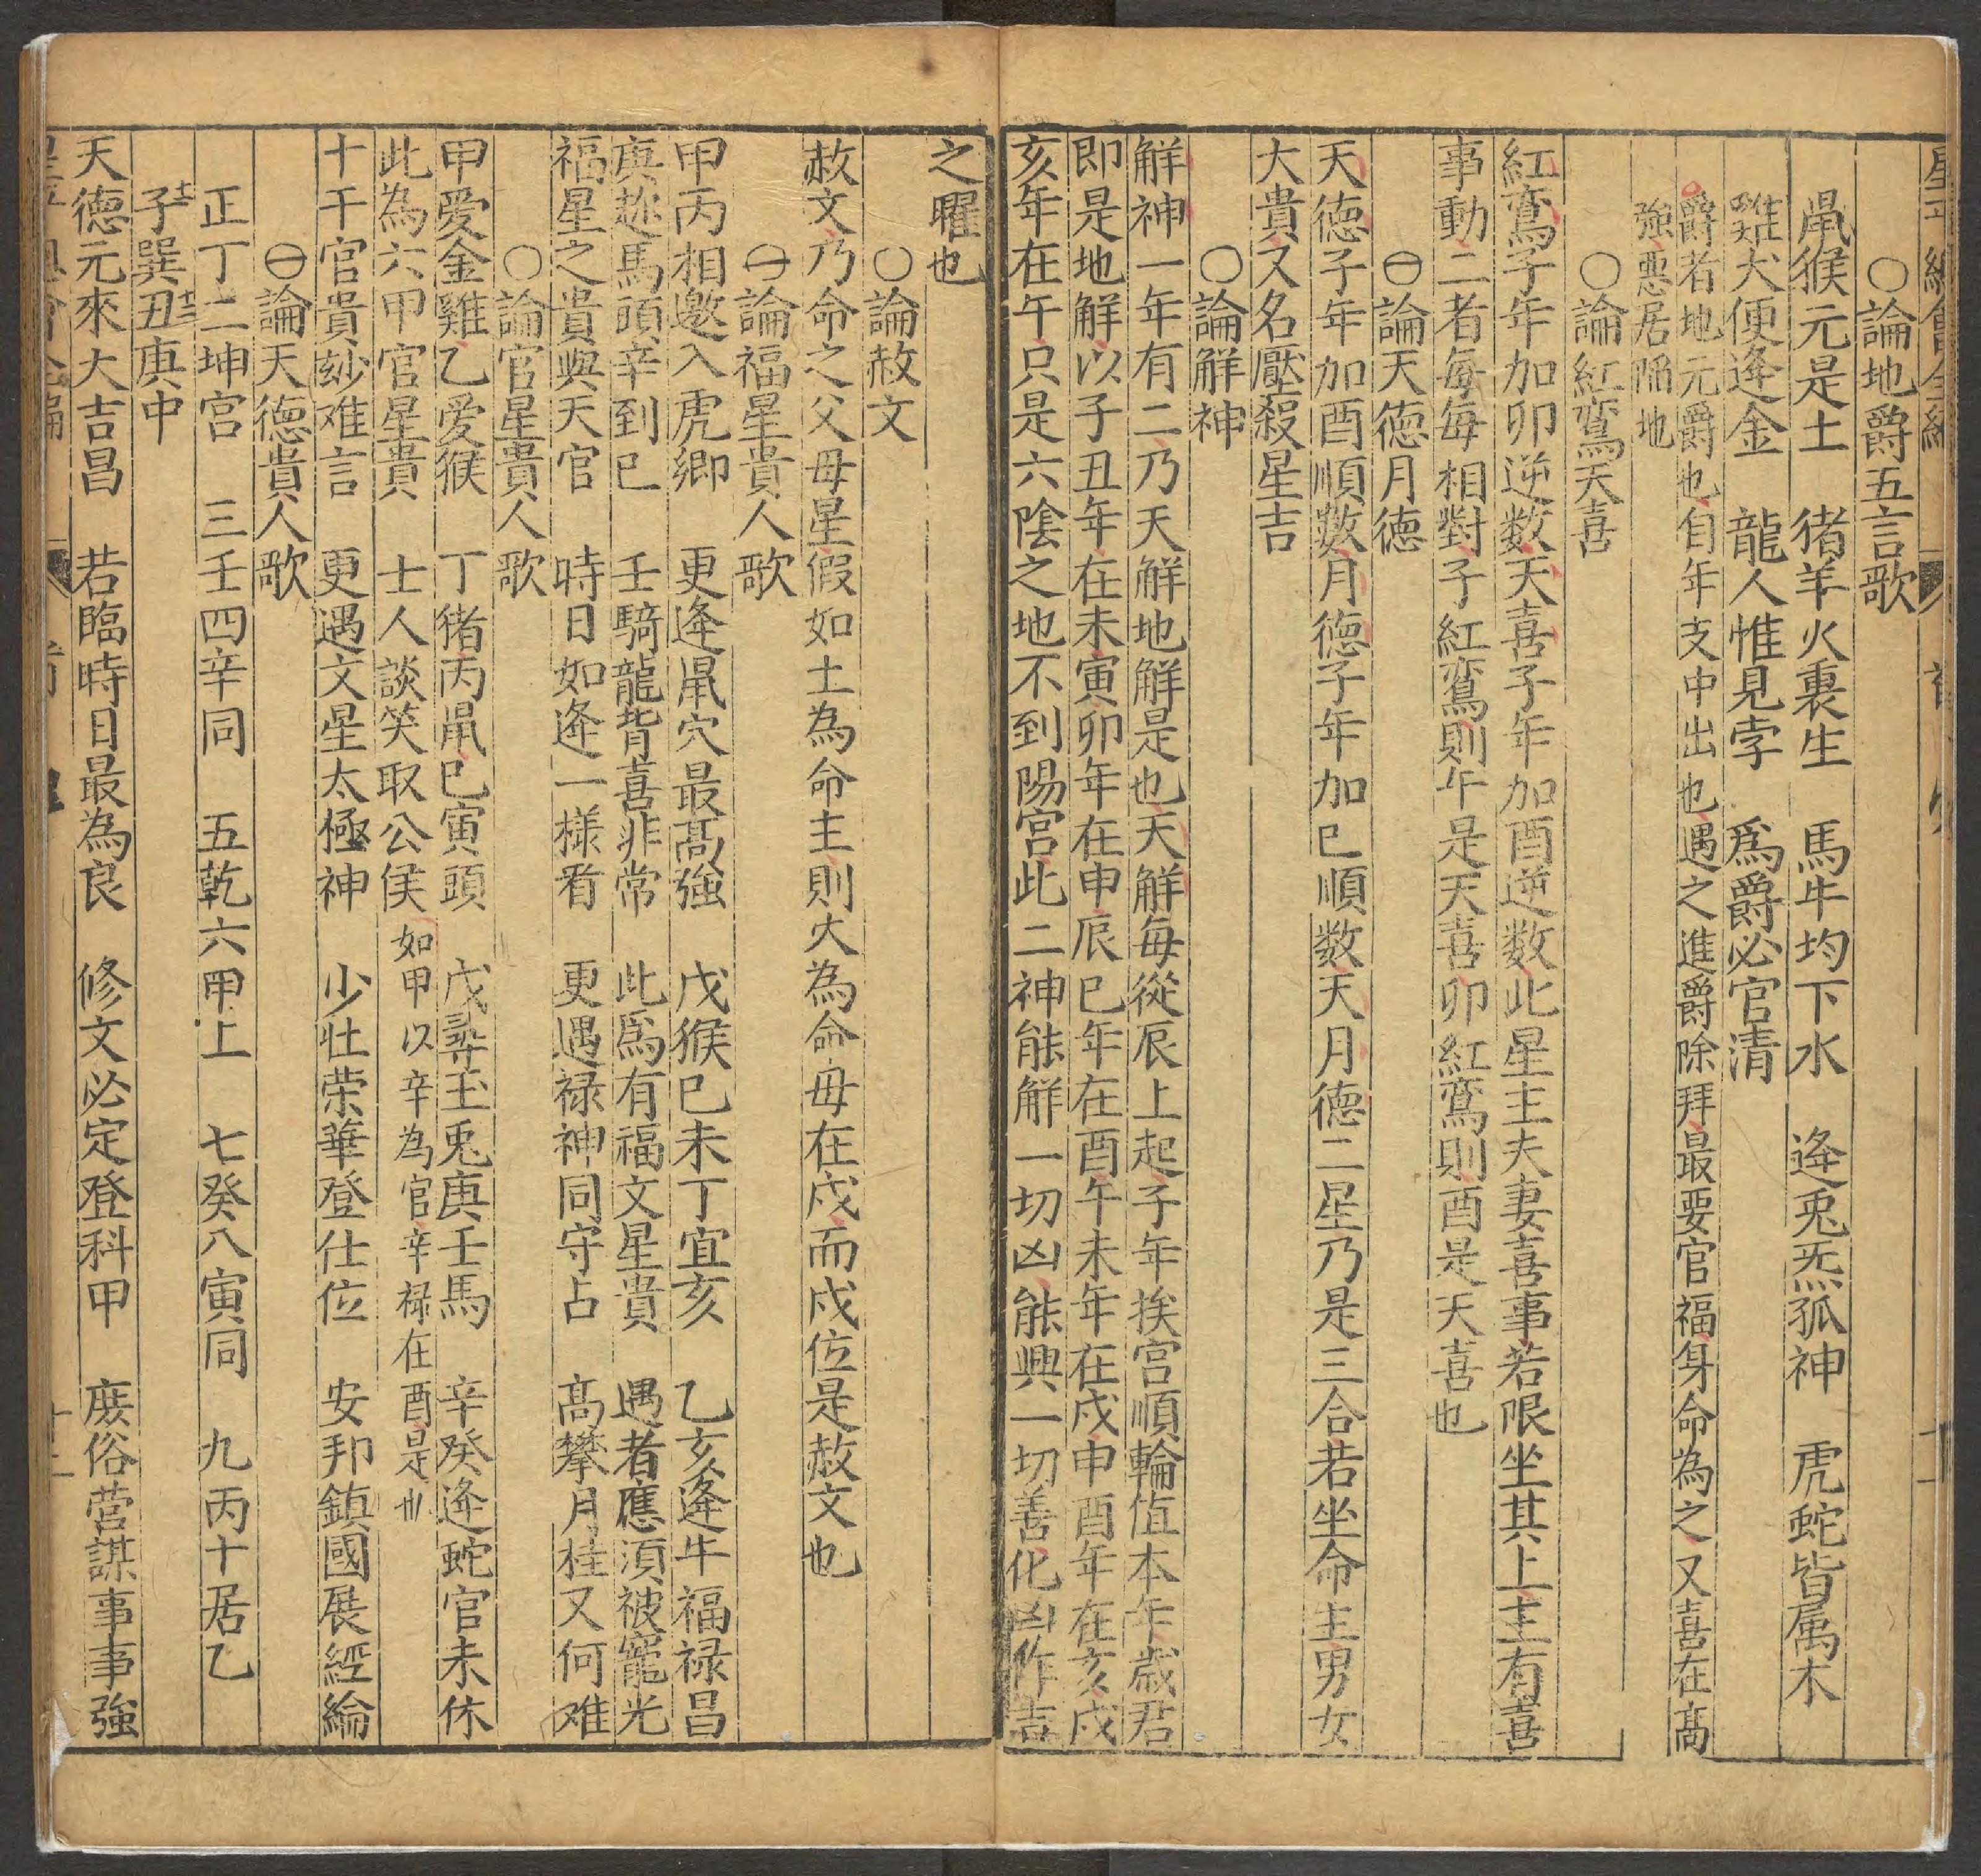 ○論地爵五言歌
鼠猴元是土　猪羊火裏生　馬牛均下水　逢兎炁孤神　虎蛇皆属木
雞犬便逢金　龍人惟見孛　爲爵必官清
爵者地元爵也自年支中出也遇之進爵除拜最要官福身命為之又喜在高
強惡居陥地
○論紅鸞天喜
紅鸞子年加卯逆数天喜子年加酉逆数此星主夫妻喜事若限坐其上主有喜
事動二者每每相對子紅鸞則午是天喜卯紅鸞則酉是天喜也
㊀論天德月德
天德子年加酉順數月德子年加巳順数天月德二星乃是三合若坐命主男女
大貴又名壓殺星吉
○論解神
解神一年有二乃天解地解是也天解每從辰上起子年挨宮順輪值本年歲君
即是地解以子丑年在未寅卯年在申辰巳年在酉午未年在戌申酉年在亥戌
亥年在午只是六陰之地不到陽宮此二神能解一切凶能興一切善化凶作吉
之曜也
○論赦文
赦文乃命之父母星假如土為命主則火為命母在戌而戌位是赦文也
㊀論福星貴人歌
甲丙相邀入虎鄉　更逢鼠穴最高強　戊猴巳未丁宜亥　乙亥逢牛福禄昌
庚趂馬頭辛到巳　壬騎龍背喜非常　此爲有福文星貴　遇者應須被寵光
福星之貴與天官　時日如逢一樣看　更遇禄神同守占　高攀月桂又何难
○論官星貴人歌
甲愛金雞乙愛猴　丁猪丙鼠巳寅頭　戊尋玉兎庚壬馬　辛癸逢蛇官未休
此為六甲官星貴　士人談笑取公侯　如甲以辛為官辛禄在酉是也
十干官貴玅难言　更遇文星太極神　少壯荣華登仕位　安邦鎮國展經綸
㊀論天德貴人歌
正丁二坤宫　三壬四辛同　五乾六甲上　七癸八寅同　九丙十居乙
十一子巽十二丑庚中
天德元來大吉昌　若臨時日最為良　修文必定登科甲　庶俗营謀事事強